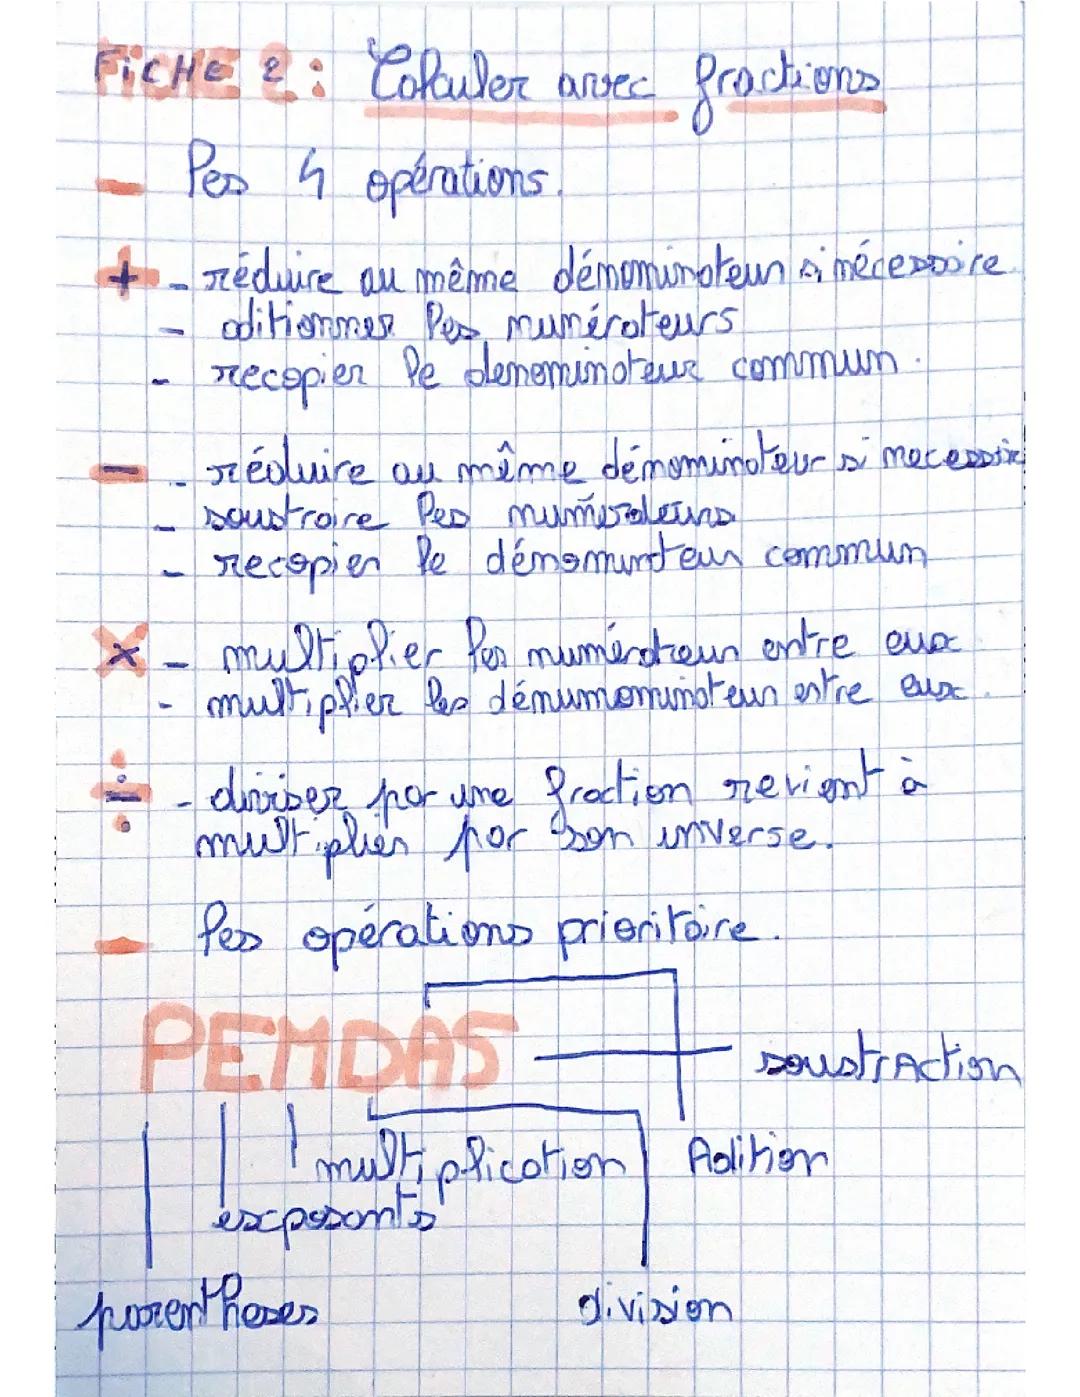 FiCHE 2 : Calculer avec fractions
- les 4 opérations.
+ - réduire au même dénominateur si nécessaire
- aditionner les numérateurs
- recopier le denominateur commun.
- - réduire au même dénominateur si necessaire
- soustraire les numérateurs
- recopier le dénominteur commun
x - multiplier les numérateur entre eux
- multiplier les dénumominateur entre eux.
÷ - diviser par une fraction revient à
multiplier par son inverse.
- les opérations prioritaire.
PEMDAS
soustrAction
multiplication Adition
exposants
parentheses division